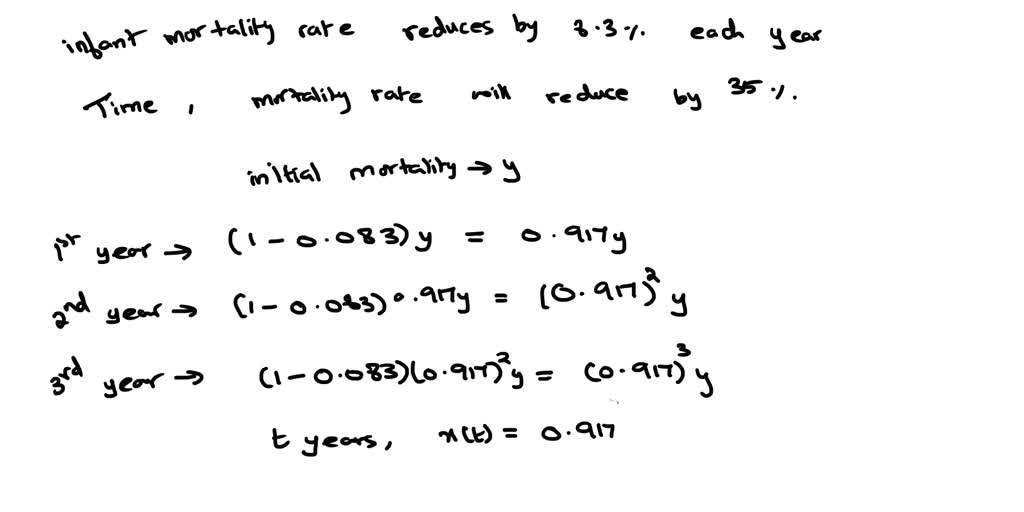 infant mortality rate reduces by 8.3% each year
Time, mortality rate will reduce by 35%.
initial mortality → y
1st year → (1 - 0.083) y = 0.917y
2nd year → (1 - 0.083) 0.917y = (0.917)² y
3rd year → (1 - 0.083)(0.917)² y = (0.917)³ y
t years, x(t) = 0.917